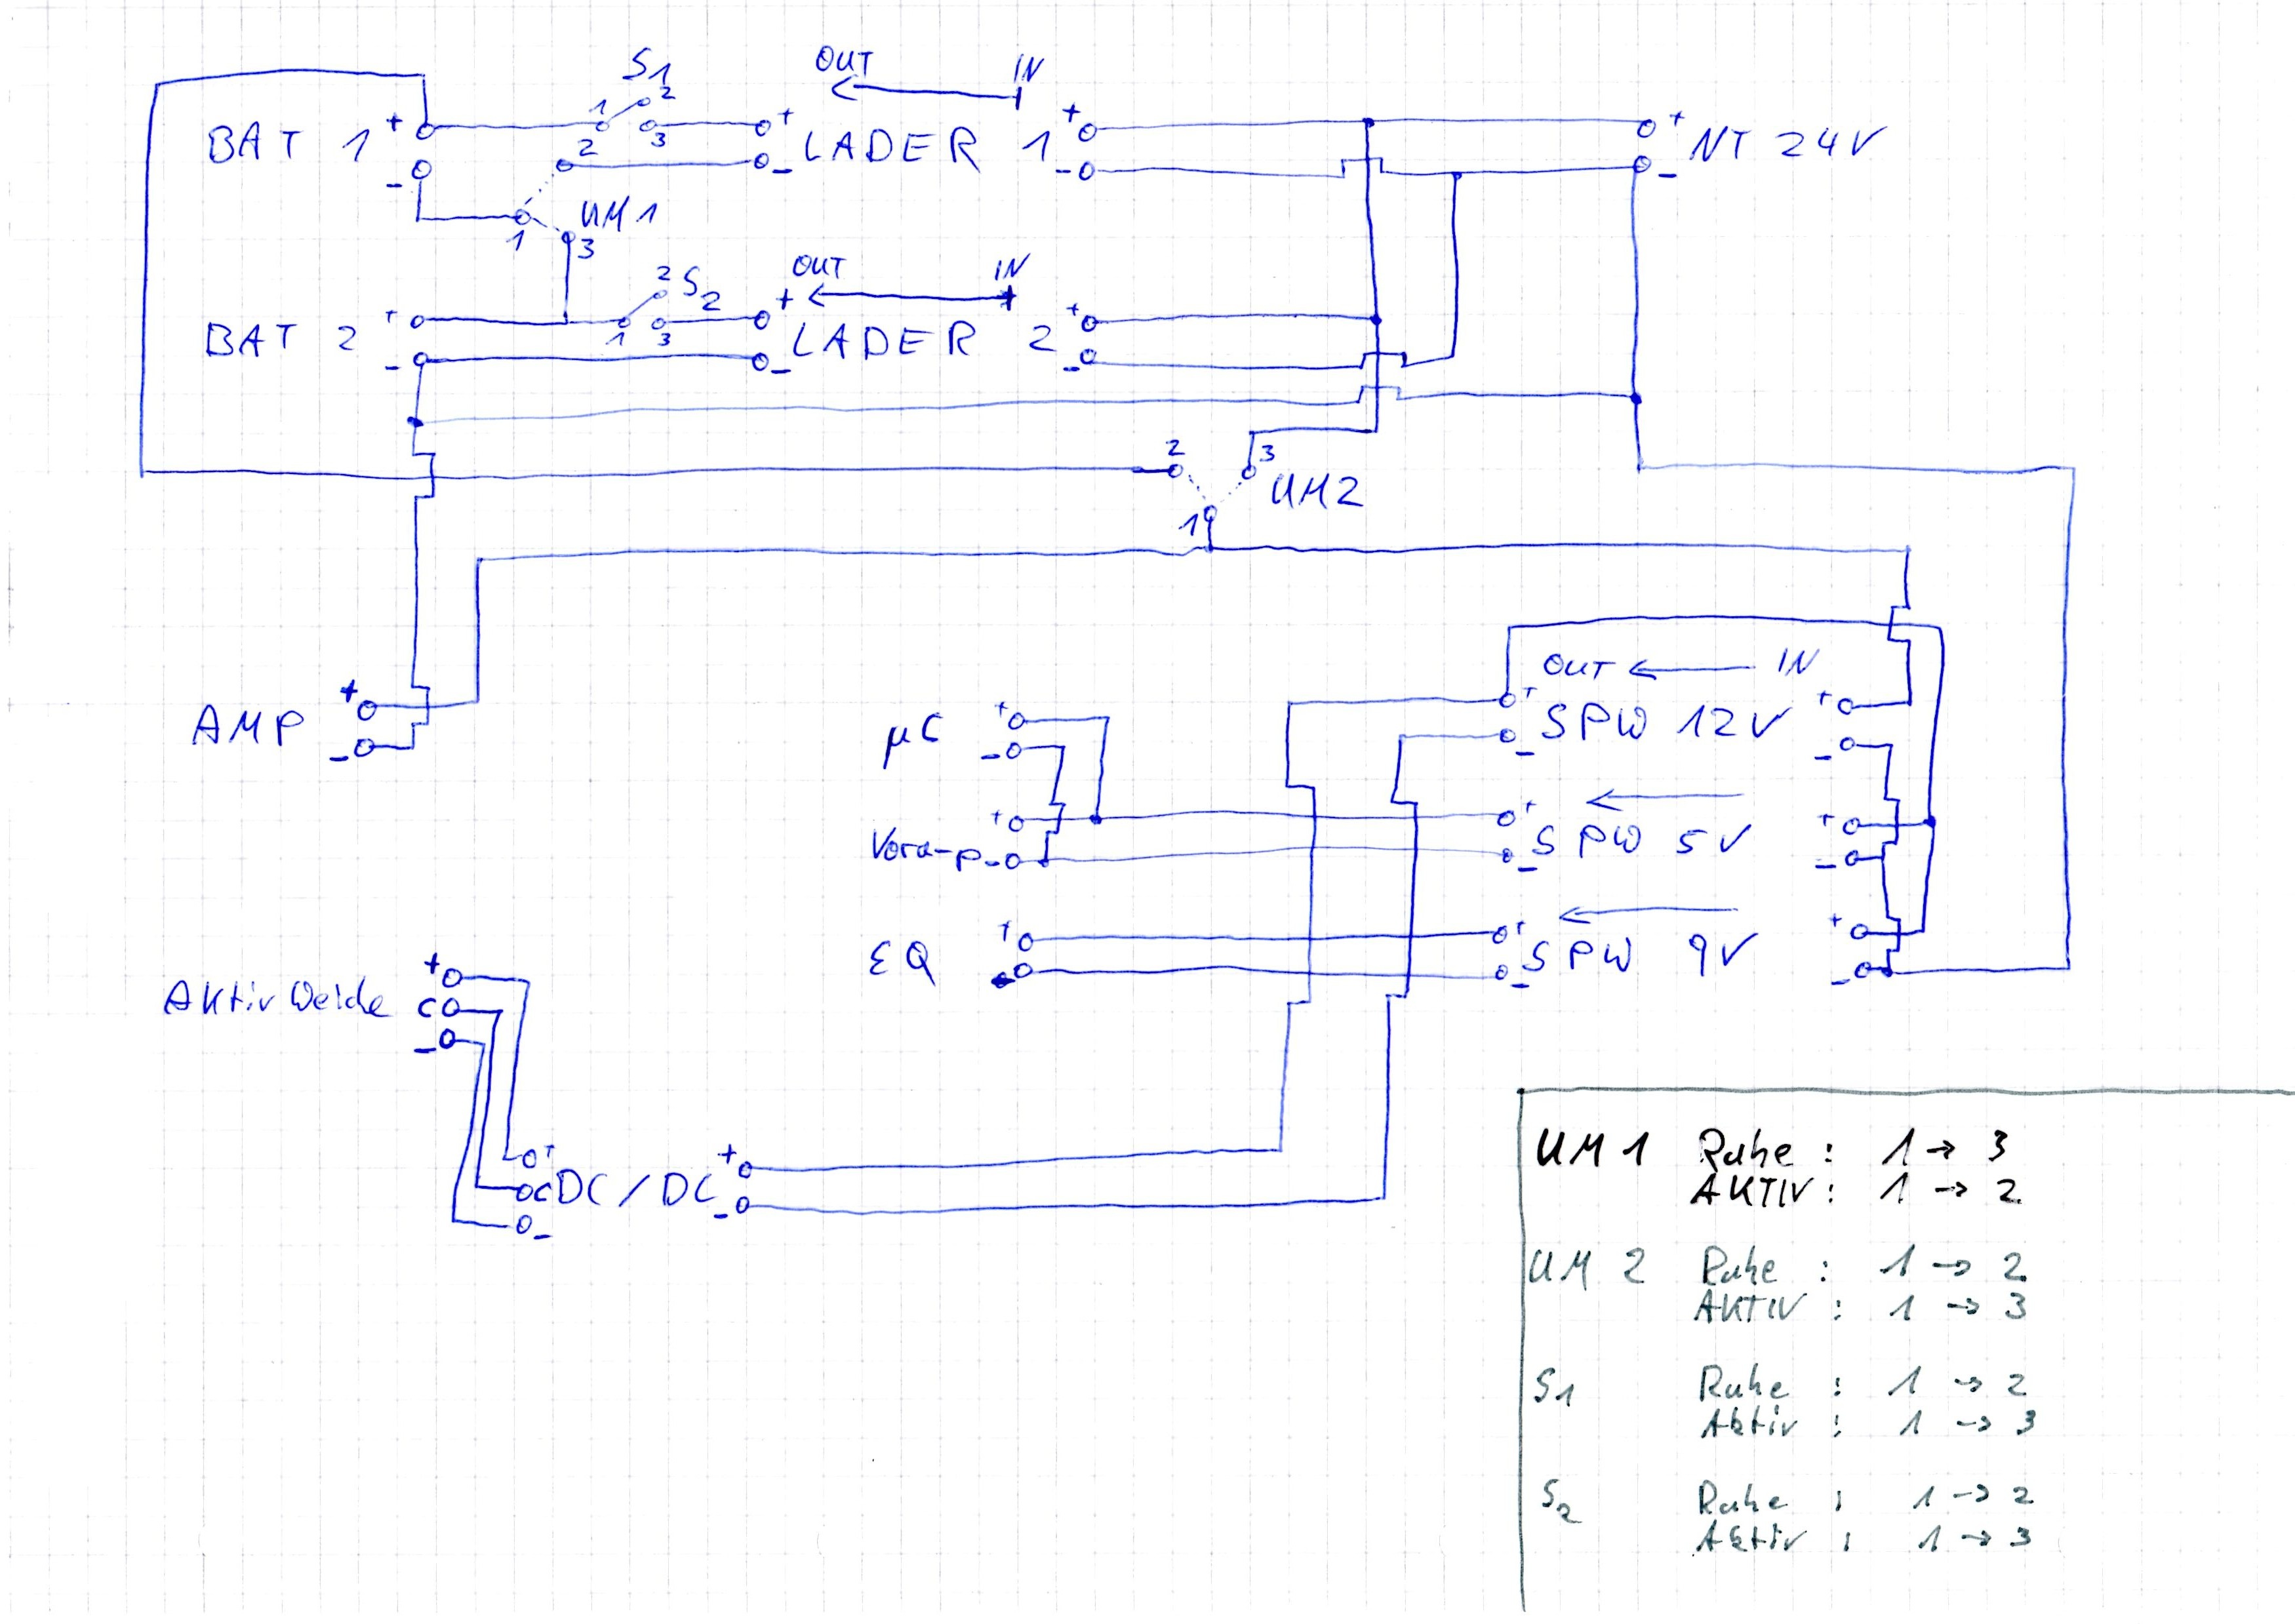 S1
OUT ← IN
1 2
BAT 1 + 3 + LADER 1 + + NT 24V
- 2 - - -
1 UM1
3
2 S2 OUT ← IN
BAT 2 + 1 3 + LADER 2 +
- - -
2 3
UM2
1
OUT ← IN
AMP + µC + + SPW 12V +
- - - -
+ + ← +
Vora-p - - SPW 5V -
←
EQ + + SPW 9V +
- - -
+
Aktiv Weiche C
-
+ +
C DC/DC -
-
UM1 Ruhe : 1 → 3
AKTIV : 1 → 2
UM 2 Ruhe : 1 → 2
AKTIV : 1 → 3
S1 Ruhe : 1 → 2
Aktiv : 1 → 3
S2 Ruhe : 1 → 2
Aktiv : 1 → 3